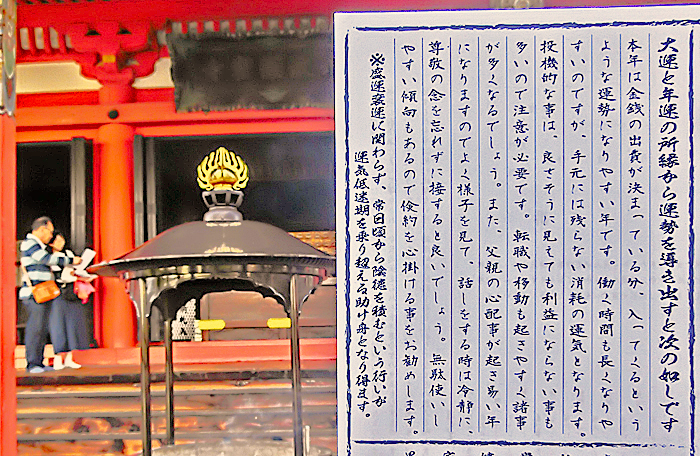 大運と年運の所縁から運勢を導き出すと次の如しです
本年は金銭の出費が決まっている分、入ってくるという
ような運勢になりやすい年です。働く時間も長くなりや
すいのですが、手元には残らない消耗の運気となります。
投機的な事は、良さそうに見えても利益にならない事も
多いので注意が必要です。転職や移動も起きやすく諸事
が多くなるでしょう。また、父親の心配事が起き易い年
になりますのでよく様子を見て、話しをする時は冷静に、
尊敬の念を忘れずに接すると良いでしょう。無駄使いし
やすい傾向もあるので倹約を心掛ける事をお勧めします。
※盛運衰運に関わらず、常日頃から陰徳を積むという行いが
運気低迷期を乗り超える助け舟となり得ます。